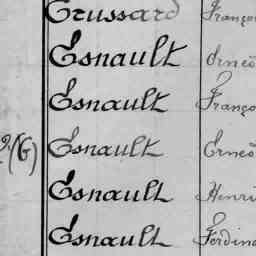 Trussard Franço
Esnault Ernes
Esnault Franço
(G) Esnault Ernes
Esnault Henri
Esnault Ferdin